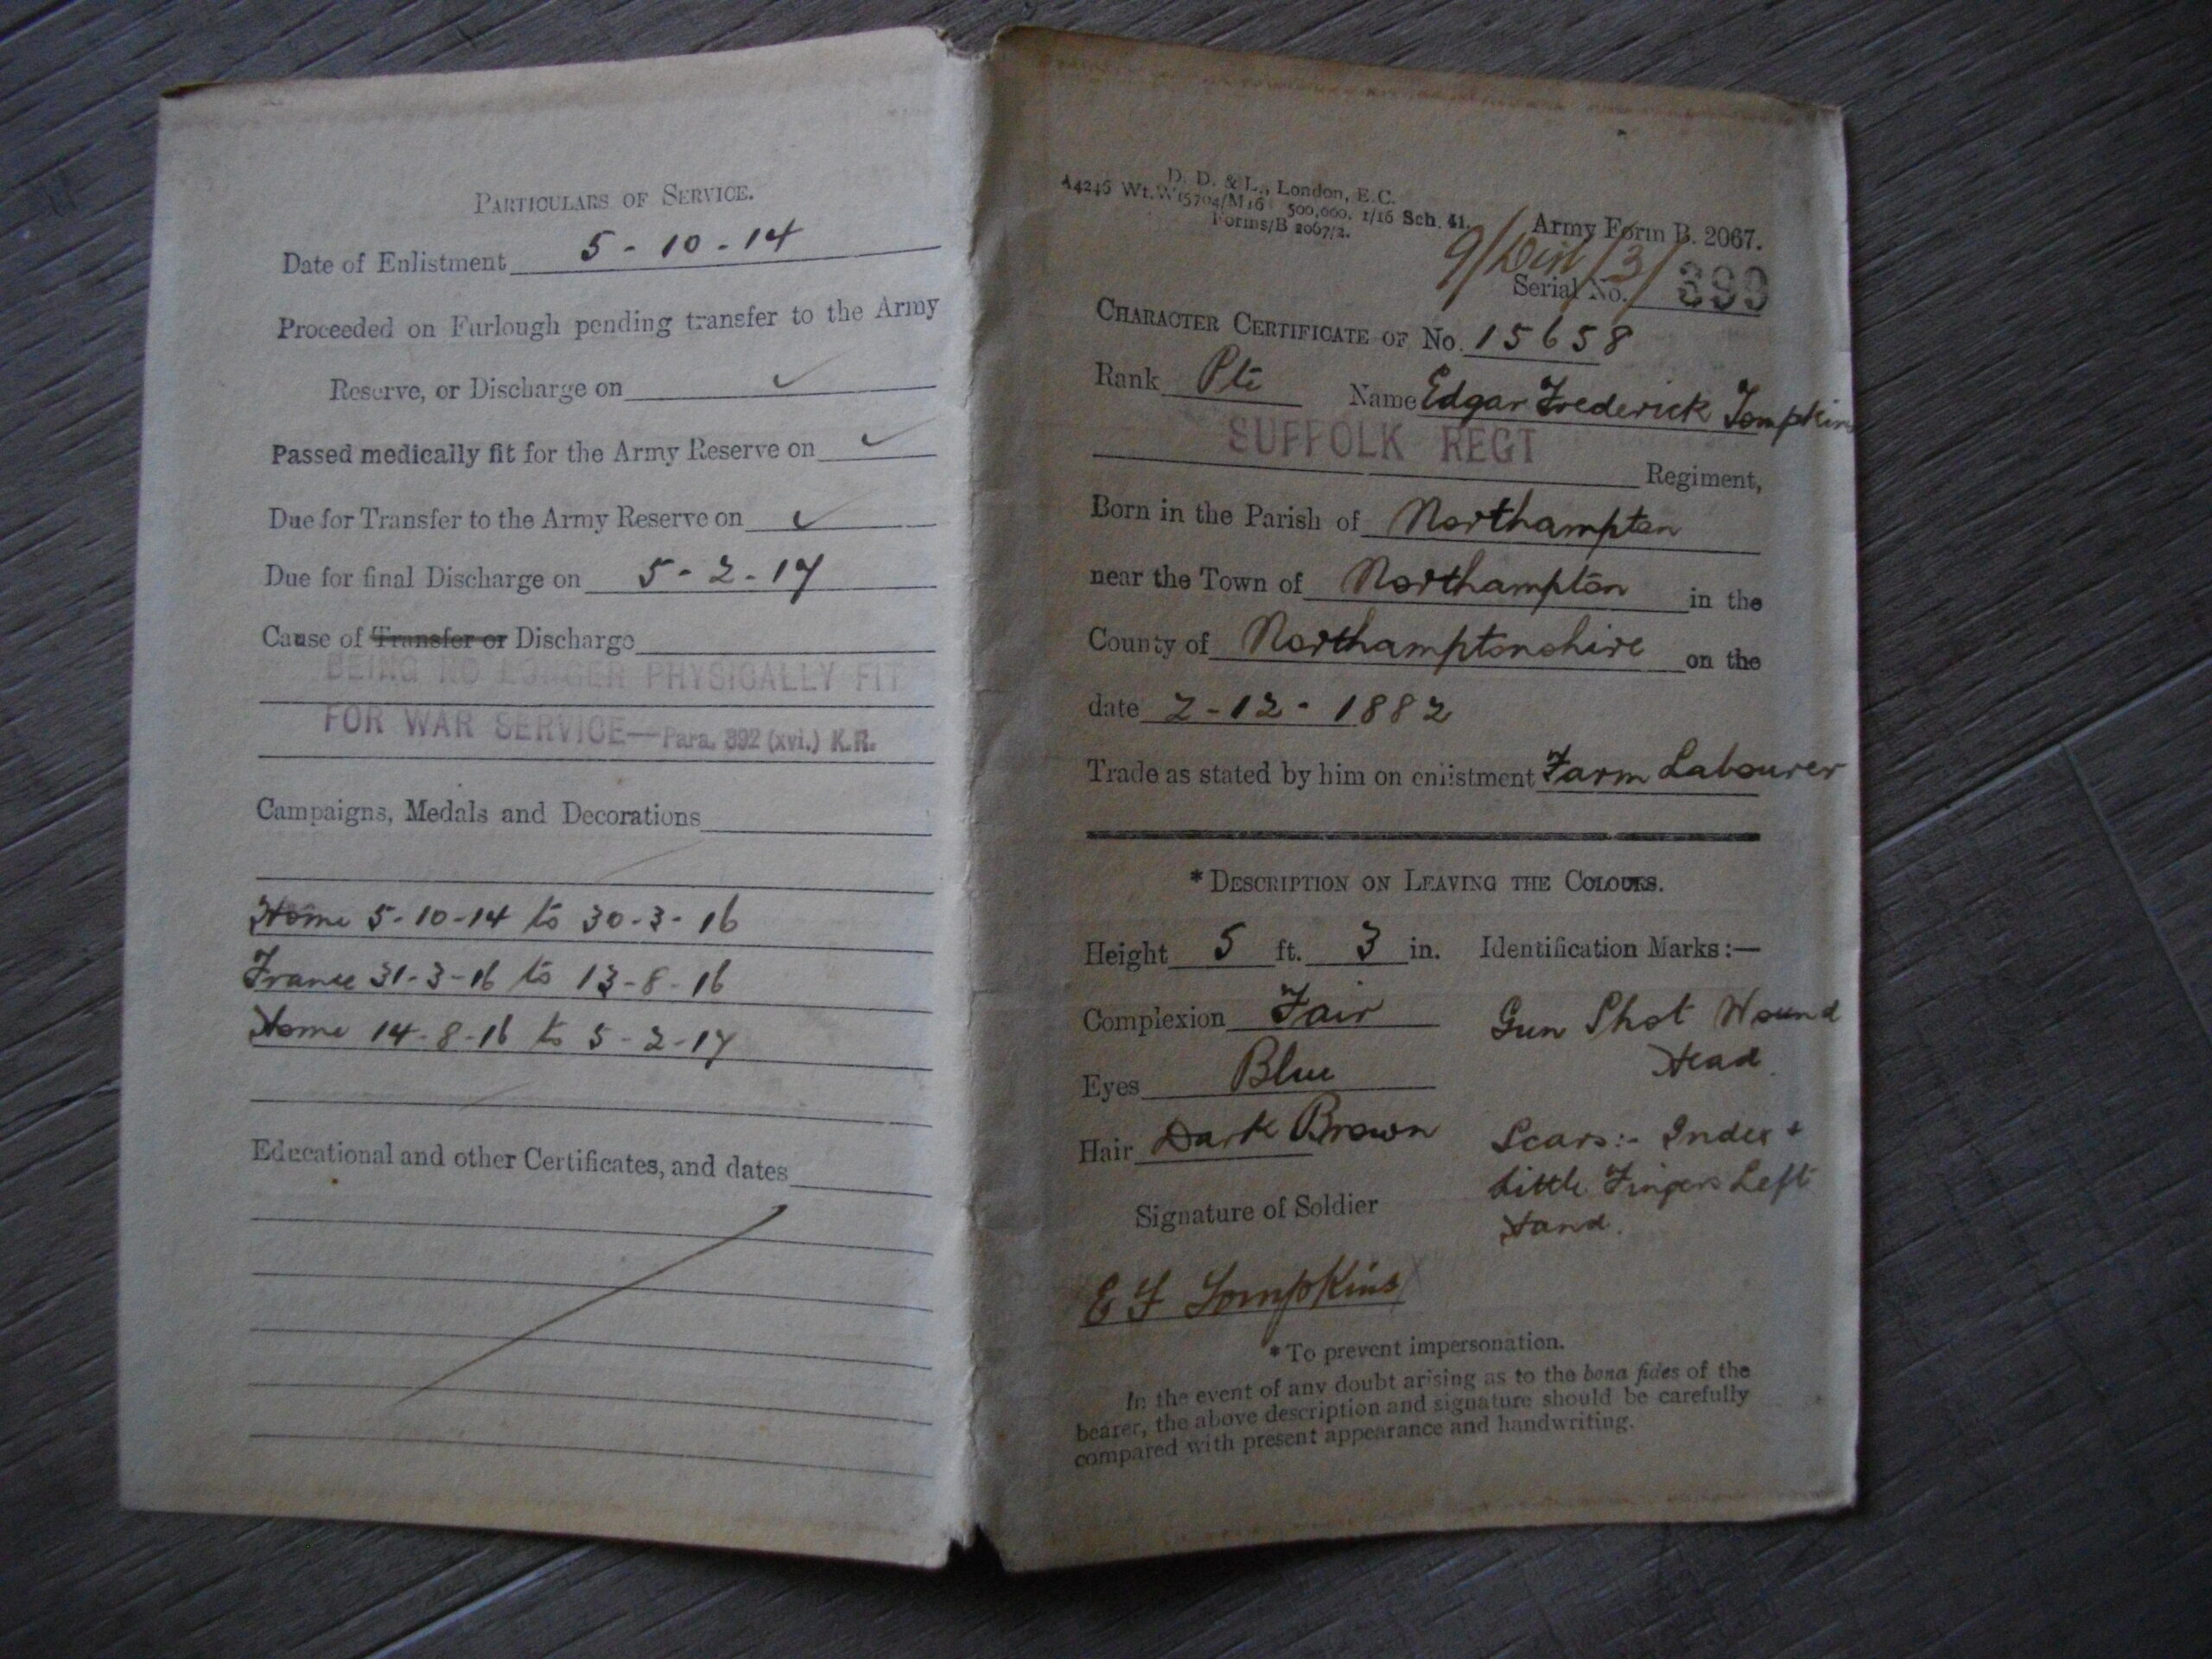 PARTICULARS OF SERVICE.
Date of Enlistment 5-10-14
Proceeded on Furlough pending transfer to the Army
Reserve, or Discharge on ✓
Passed medically fit for the Army Reserve on ✓
Due for Transfer to the Army Reserve on ✓
Due for final Discharge on 5-2-17
Cause of Transfer or Discharge
BEING NO LONGER PHYSICALLY FIT
FOR WAR SERVICE—Para. 392 (xvi.) K.R.
Campaigns, Medals and Decorations
Home 5-10-14 to 30-3-16
France 31-3-16 to 13-8-16
Home 14-8-16 to 5-2-17
Educational and other Certificates, and dates
D. D. & L., London, E.C.
A4246 Wt. W15704/M16 500,000. 1/16 Sch. 41.
Forms/B 2067/2.
Army Form B. 2067.
Serial No. 399
CHARACTER CERTIFICATE OF No. 15658
Rank Pte Name Edgar Frederick Tompkins
SUFFOLK REGT
Regiment,
Born in the Parish of Northampton
near the Town of Northampton in the
County of Northamptonshire on the
date 2-12-1882
Trade as stated by him on enlistment Farm Labourer
*DESCRIPTION ON LEAVING THE COLOURS.
Height 5 ft. 3 in. Identification Marks:—
Complexion Fair Gun Shot Wound
Head
Eyes Blue
Hair Dark Brown Scars:- Index +
Little Fingers Left
Hand.
Signature of Soldier
E F Tompkins
*To prevent impersonation.
In the event of any doubt arising as to the bona fides of the
bearer, the above description and signature should be carefully
compared with present appearance and handwriting.